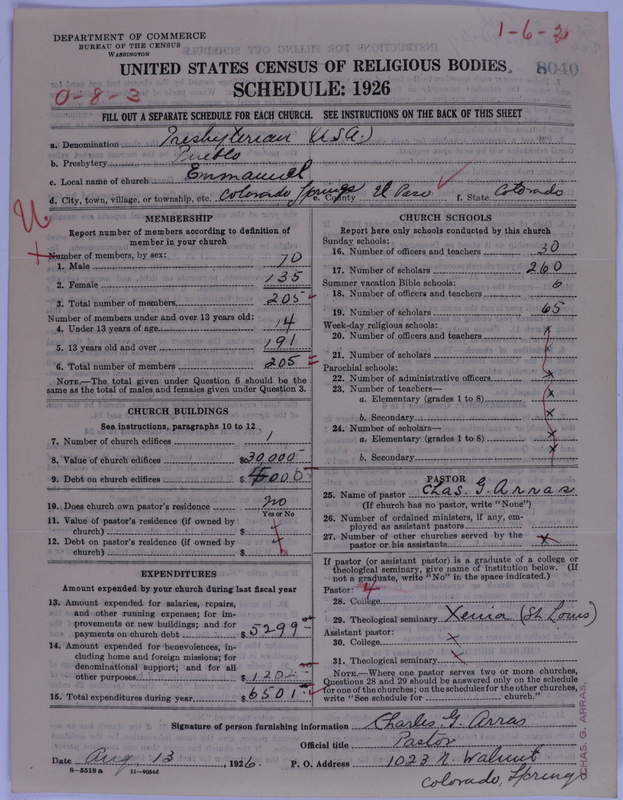 DEPARTMENT OF COMMERCE
BUREAU OF THE CENSUS
WASHINGTON
1-6-
8040
UNITED STATES CENSUS OF RELIGIOUS BODIES
0-8-3
SCHEDULE: 1926
FILL OUT A SEPARATE SCHEDULE FOR EACH CHURCH. SEE INSTRUCTIONS ON THE BACK OF THIS SHEET
a. Denomination Presbyterian (USA)
b. Presbytery Pueblo
c. Local name of church Emmanuel
d. City, town, village, or township, etc. Colorado Springs e. County El Paso f. State Colorado
MEMBERSHIP
Report number of members according to definition of
member in your church
Number of members, by sex:
1. Male 70
2. Female 135
3. Total number of members 205
Number of members under and over 13 years old:
4. Under 13 years of age 14
5. 13 years old and over 191
6. Total number of members 205
NOTE.—The total given under Question 6 should be the
same as the total of males and females given under Question 3.
CHURCH BUILDINGS
See instructions, paragraphs 10 to 12
7. Number of church edifices 1
8. Value of church edifices $30,000
9. Debt on church edifices $ 000
10. Does church own pastor's residence no
Yes or No
11. Value of pastor's residence (if owned by
church) $
12. Debt on pastor's residence (if owned by
church) $
EXPENDITURES
Amount expended by your church during last fiscal year
13. Amount expended for salaries, repairs,
and other running expenses; for im-
provements or new buildings; and for
payments on church debt $5299
14. Amount expended for benevolences, in-
cluding home and foreign missions; for
denominational support; and for all
other purposes $1202
15. Total expenditures during year $6501
CHURCH SCHOOLS
Report here only schools conducted by this church
Sunday schools:
16. Number of officers and teachers 30
17. Number of scholars 260
Summer vacation Bible schools:
18. Number of officers and teachers 6
19. Number of scholars 65
Week-day religious schools:
20. Number of officers and teachers x
21. Number of scholars x
Parochial schools:
22. Number of administrative officers x
23. Number of teachers—
a. Elementary (grades 1 to 8) x
b. Secondary x
24. Number of scholars—
a. Elementary (grades 1 to 8) x
b. Secondary x
PASTOR
25. Name of pastor Chas. G. Arras
(If church has no pastor, write "None")
26. Number of ordained ministers, if any, em-
ployed as assistant pastors
27. Number of other churches served by the
pastor or his assistants x
If pastor (or assistant pastor) is a graduate of a college or
theological seminary, give name of institution below. (If
not a graduate, write "No" in the space indicated.)
Pastor:
28. College
29. Theological seminary Xenia (St. Louis)
Assistant pastor:
30. College x
31. Theological seminary x
NOTE.—Where one pastor serves two or more churches,
Questions 28 and 29 should be answered only on the schedule
for one of the churches; on the schedules for the other churches,
write "See schedule for church."
CHAS. G. ARRAS
Signature of person furnishing information Charles G. Arras
Official title Pastor
Date Aug 13, 1926. P. O. Address 1023 N. Walnut
8—5518 a
Colorado Springs